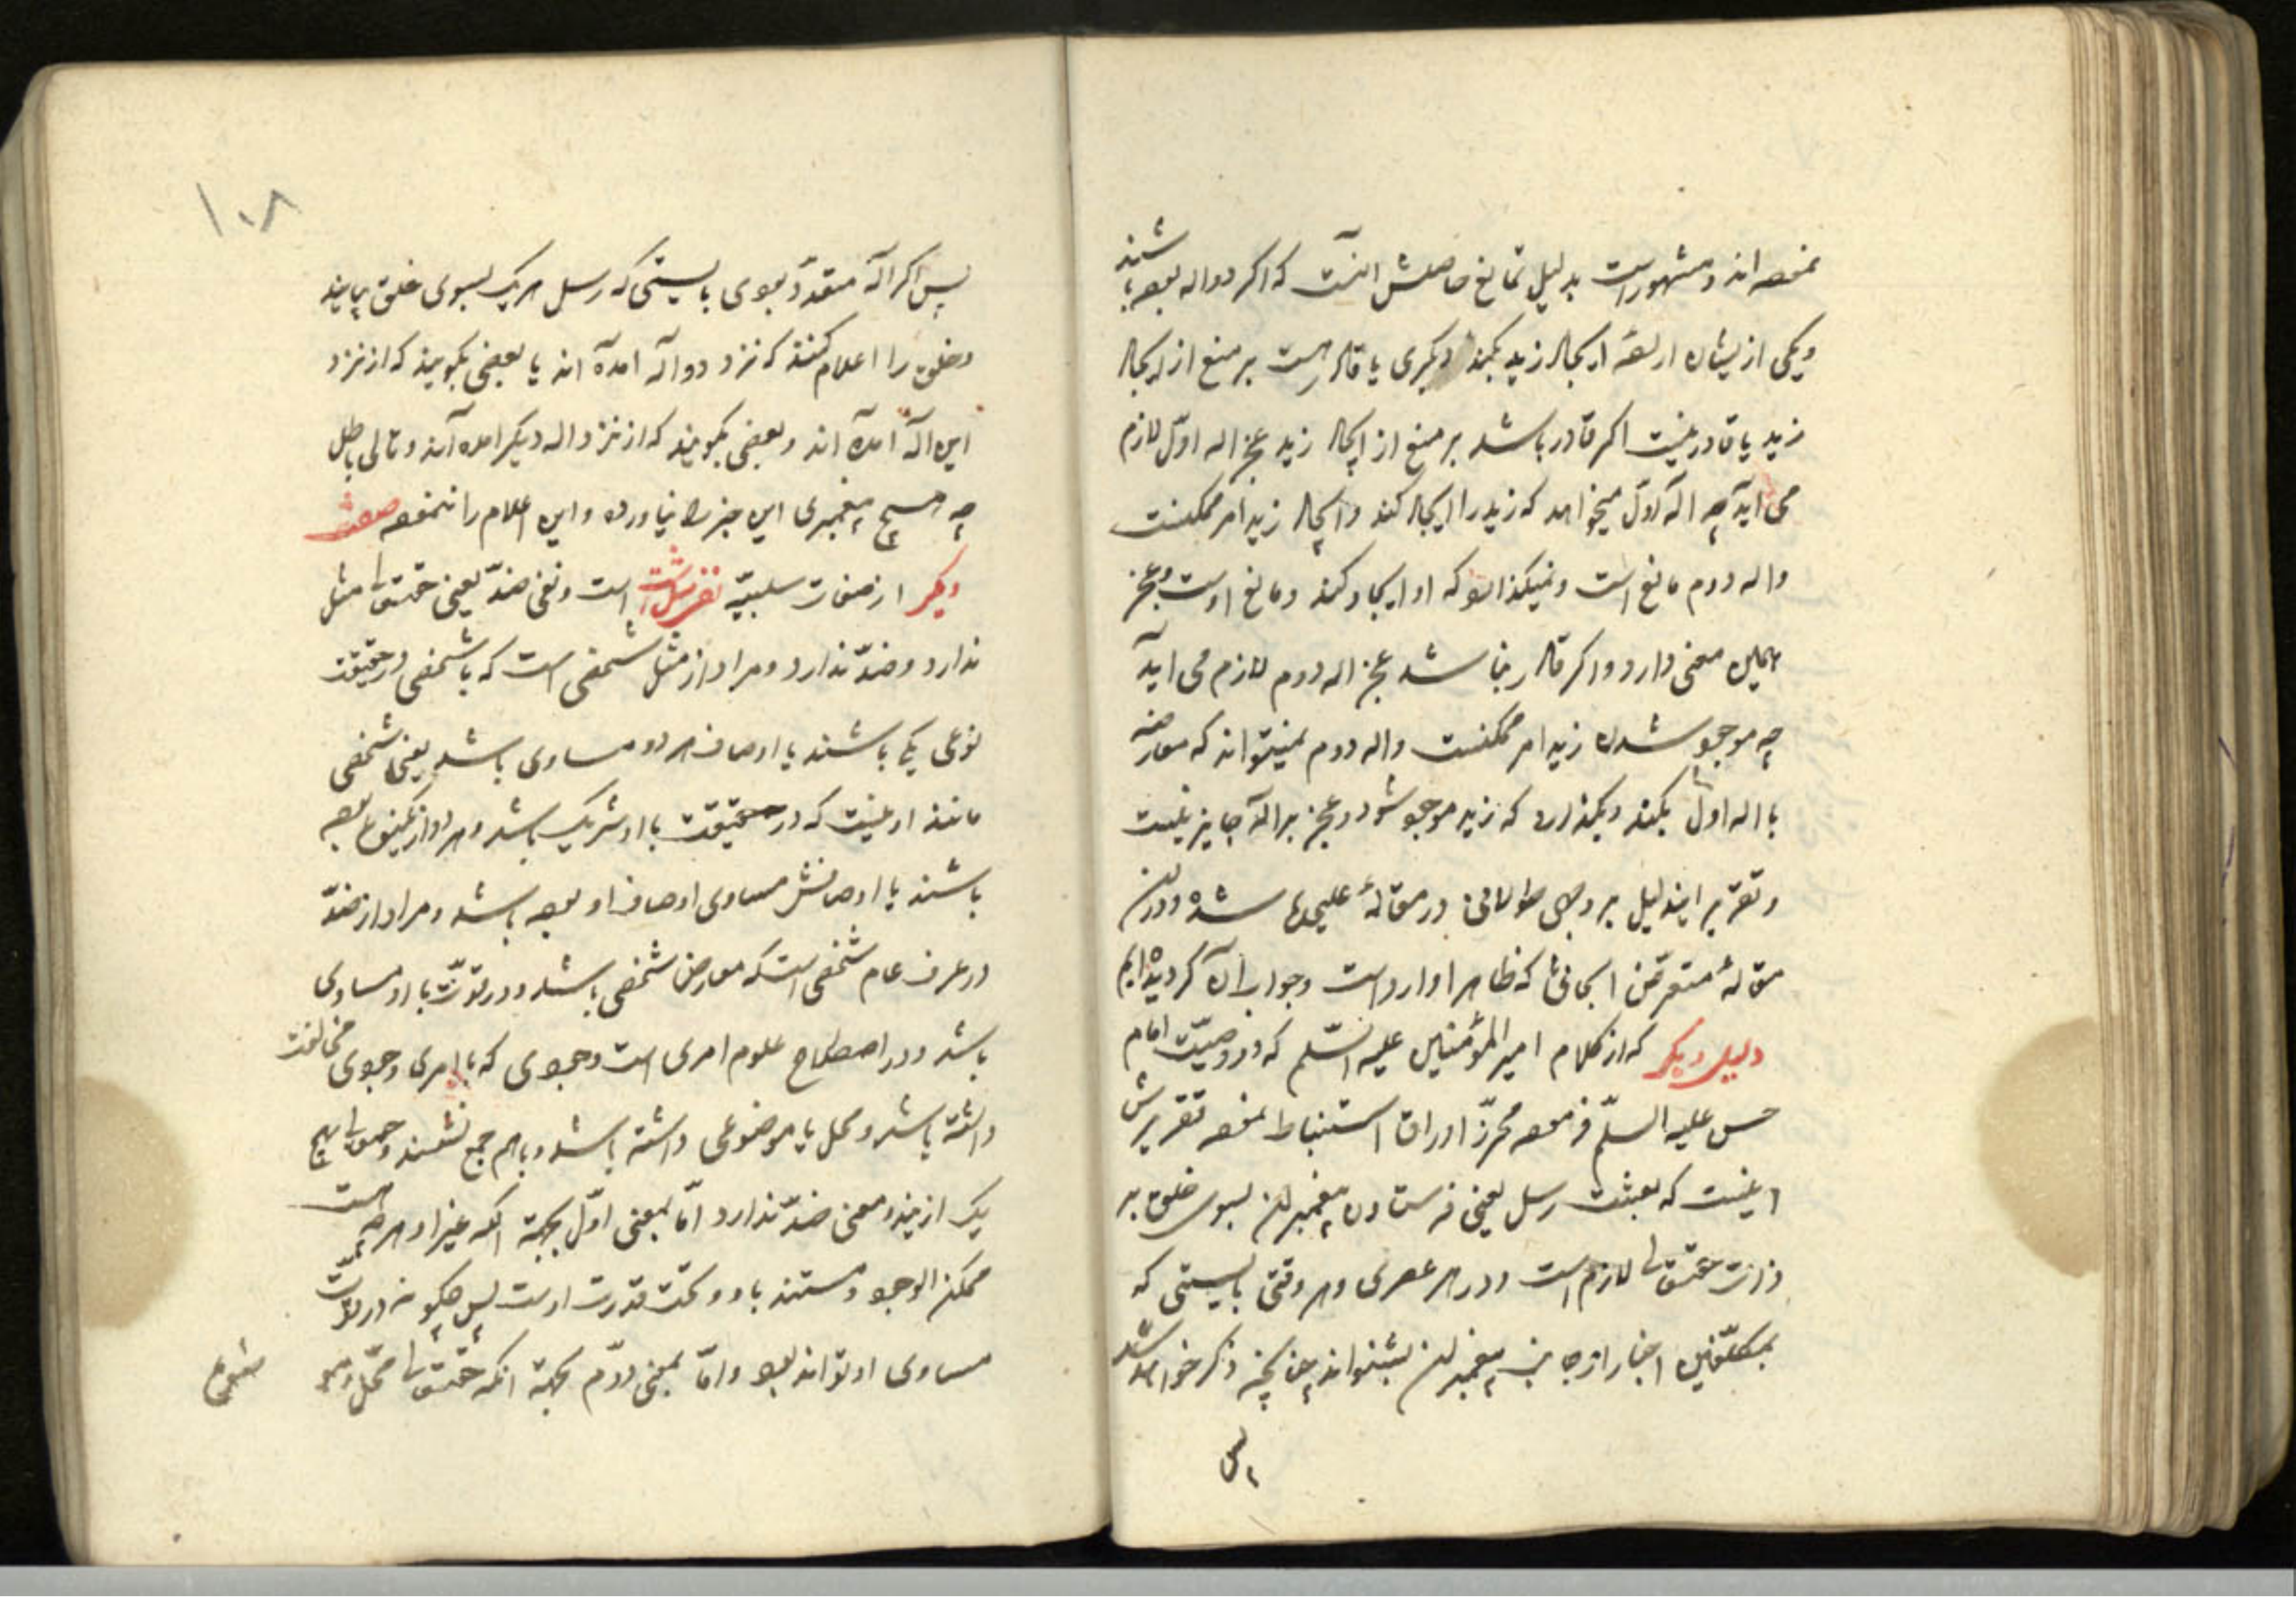 نموده‌اند و مشهور است بدلیل تمانع حاصلش اینست که اکر دو اله بوده باشند
و یکی از یشان اراده ایجاد زید بکند دیکری یا قادر است بر منع از ایجاد
زید یا قادر نیست اکر قادر باشد بر منع از ایجاد زید عجز اله اوّل لازم
می آید چه اله اوّل میخواهد که زید را ایجاد کند و ایجاد زید امر ممکنست
و اله دوم مانع است و نمیکذارد که او ایجاد کند و مانع اوست و عجز
همین معنی دارد و اکر قادر نباشد عجز اله دوم لازم می آید
چه موجود شدن زید امر ممکنست و اله دوم نمیتواند که معارضه
با اله اول بکند و نکذارد که زید موجود شود و عجز بر اله جایز نیست
و تقریر ایندلیل بر وجهی طولانی در مقالهٔ علیحده شده و در آن
مقالهٔ متعرّض ابحاثی که ظاهرا وارد است و جواب آن کردیده ایم
دلیل دیکر که از کلام امیر المؤمنین علیه السّلم که در وصیّت امام
حسن علیه السلّم فرموده محرّر اوراق استنباط نموده تقریرش
اینست که بعثت رسل یعنی فرستادن پیغمبران بسوی خلق بر
ذات حقتعالی لازم است و در هر عصری و هر وقتی بایستی که
بمکلّفین اخبار از جانب پیغمبران بشنواند چنانچه ذکر خواهد شد
پس
۱۰۸
پس اکر اله متعدّد بودی بایستی که رسل هر یک بسوی خلق بیایند
و خلق را اعلام کنند که نزد دو اله آمده اند یا بعضی بکویند که از نزد
این اله آمده اند و بعضی بکویند که از نزد اله دیکر آمده اند و تالی باطل
چه هیچ پیغمبری این خبر را نیاورده و این اعلام را ننموده صفت
دیکر از صفات سلبیّه نفی مثل است و نفی ضدّ یعنی حقتعالی مثل
ندارد و ضدّ ندارد و مراد از مثل شخصی است که با شخصی در حقیقت
نوعی یکی باشند یا اوصاف هر دو مساوی باشد یعنی شخصی
مانند او نیست که در حقیقت با او شریک باشد و هر دو از یکنوع بوده
باشند یا اوصافش مساوی اوصاف او بوده باشد و مراد از ضدّ
در عرف عام شخصی است که معارض شخصی باشد و در قوّت با او مساوی
باشد و در اصطلاح علوم امری است وجودی که با امری وجودی مخالفت
داشته باشد و محل یا موضوعی داشته باشد و باهم جمع نشوند و حقتعالی هیچ
یک از یندو معنی ضدّ ندارد امّا بمعنی اوّل بجهة انکه غیر او هر چه هست
ممکن الوجود و مستند باو و تحت قدرت اوست پس چکونه در قوّت
مساوی او تواند بود و امّا بمعنی دوّم بجهة انکه حقتعالی محلّ و
موضوع